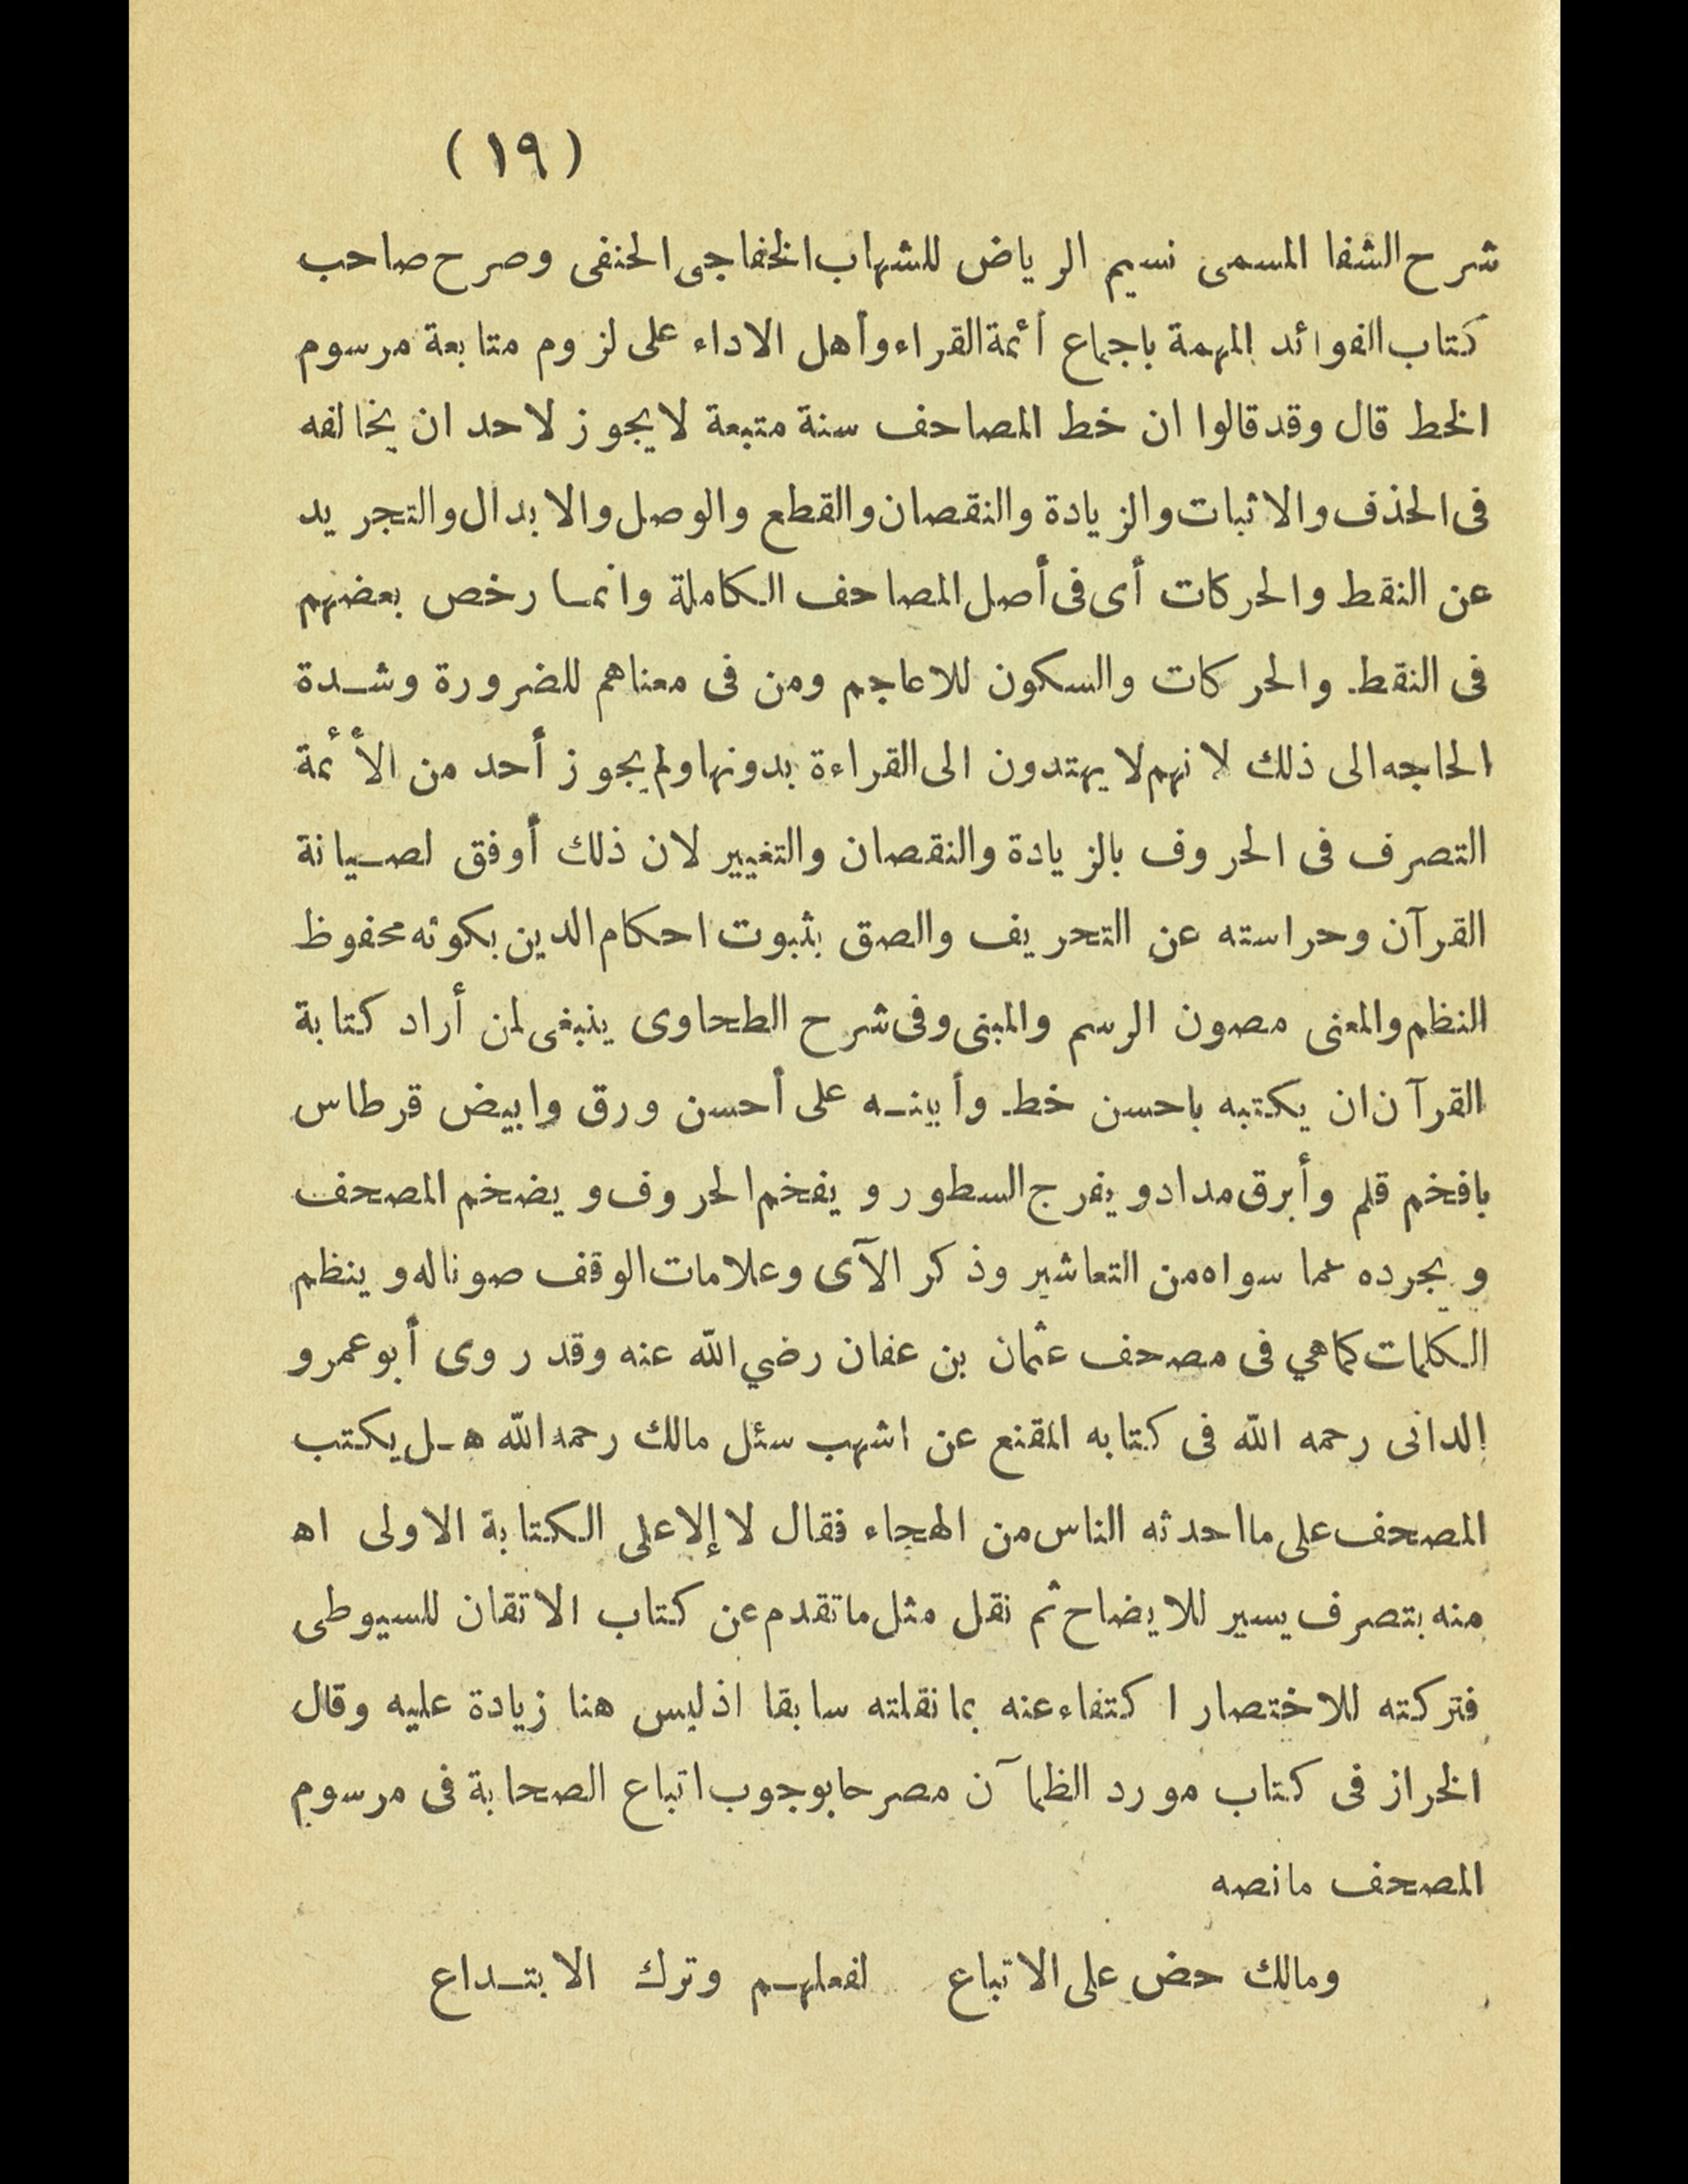 (١٩)
شرح الشفا المسمى نسيم الرياض للشهاب الخفاجى الحنفى وصرح صاحب
كتاب الفوائد المهمة باجماع أئمة القراء وأهل الاداء على لزوم متابعة مرسوم
الخط قال وقد قالوا ان خط المصاحف سنة متبعة لايجوز لاحد ان يخالفه
فى الحذف والاثبات والزيادة والنقصان والقطع والوصل والابدال والتجريد
عن النقط والحركات أى فى أصل المصاحف الكاملة وانما رخص بعضهم
فى النقط والحركات والسكون للاعاجم ومن فى معناهم للضرورة وشدة
الحاجه الى ذلك لانهم لا يهتدون الى القراءة بدونها ولم يجوز أحد من الأئمة
التصرف فى الحروف بالزيادة والنقصان والتغيير لان ذلك أوفق لصيانة
القرآن وحراسته عن التحريف والصق بثبوت احكام الدين بكونه محفوظ
النظم والمعنى مصون الرسم والمبنى وفى شرح الطحاوى ينبغى لمن أراد كتابة
القرآن ان يكتبه باحسن خط وأبينه على أحسن ورق وابيض قرطاس
بافخم قلم وأبرق مداد ويفرج السطور ويفخم الحروف ويضخم المصحف
ويجرده عما سواه من التعاشير وذكر الآى وعلامات الوقف صونا له وينظم
الكلمات كما هي فى مصحف عثمان بن عفان رضي الله عنه وقد روى أبو عمرو
الدانى رحمه الله فى كتابه المقنع عن اشهب سئل مالك رحمه الله هل يكتب
المصحف على ما احدثه الناس من الهجاء فقال لا إلا على الكتابة الاولى اه
منه بتصرف يسير للايضاح ثم نقل مثل ما تقدم عن كتاب الاتقان للسيوطى
فتركته للاختصار اكتفاء عنه بما نقلته سابقا اذ ليس هنا زيادة عليه وقال
الخراز فى كتاب مورد الظمآن مصرحا بوجوب اتباع الصحابة فى مرسوم
المصحف مانصه
ومالك حض على الاتباع لفعلهم وترك الابتداع